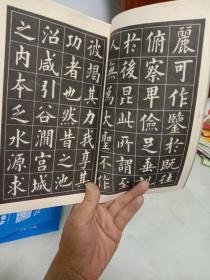 麗可作鑒於既往
俯察卑儉足垂訓
於後昆此所謂至
人無為大聖不作
彼竭其力我享其
功者也然昔之池
沼咸引谷澗宮城
之內本乏水源求